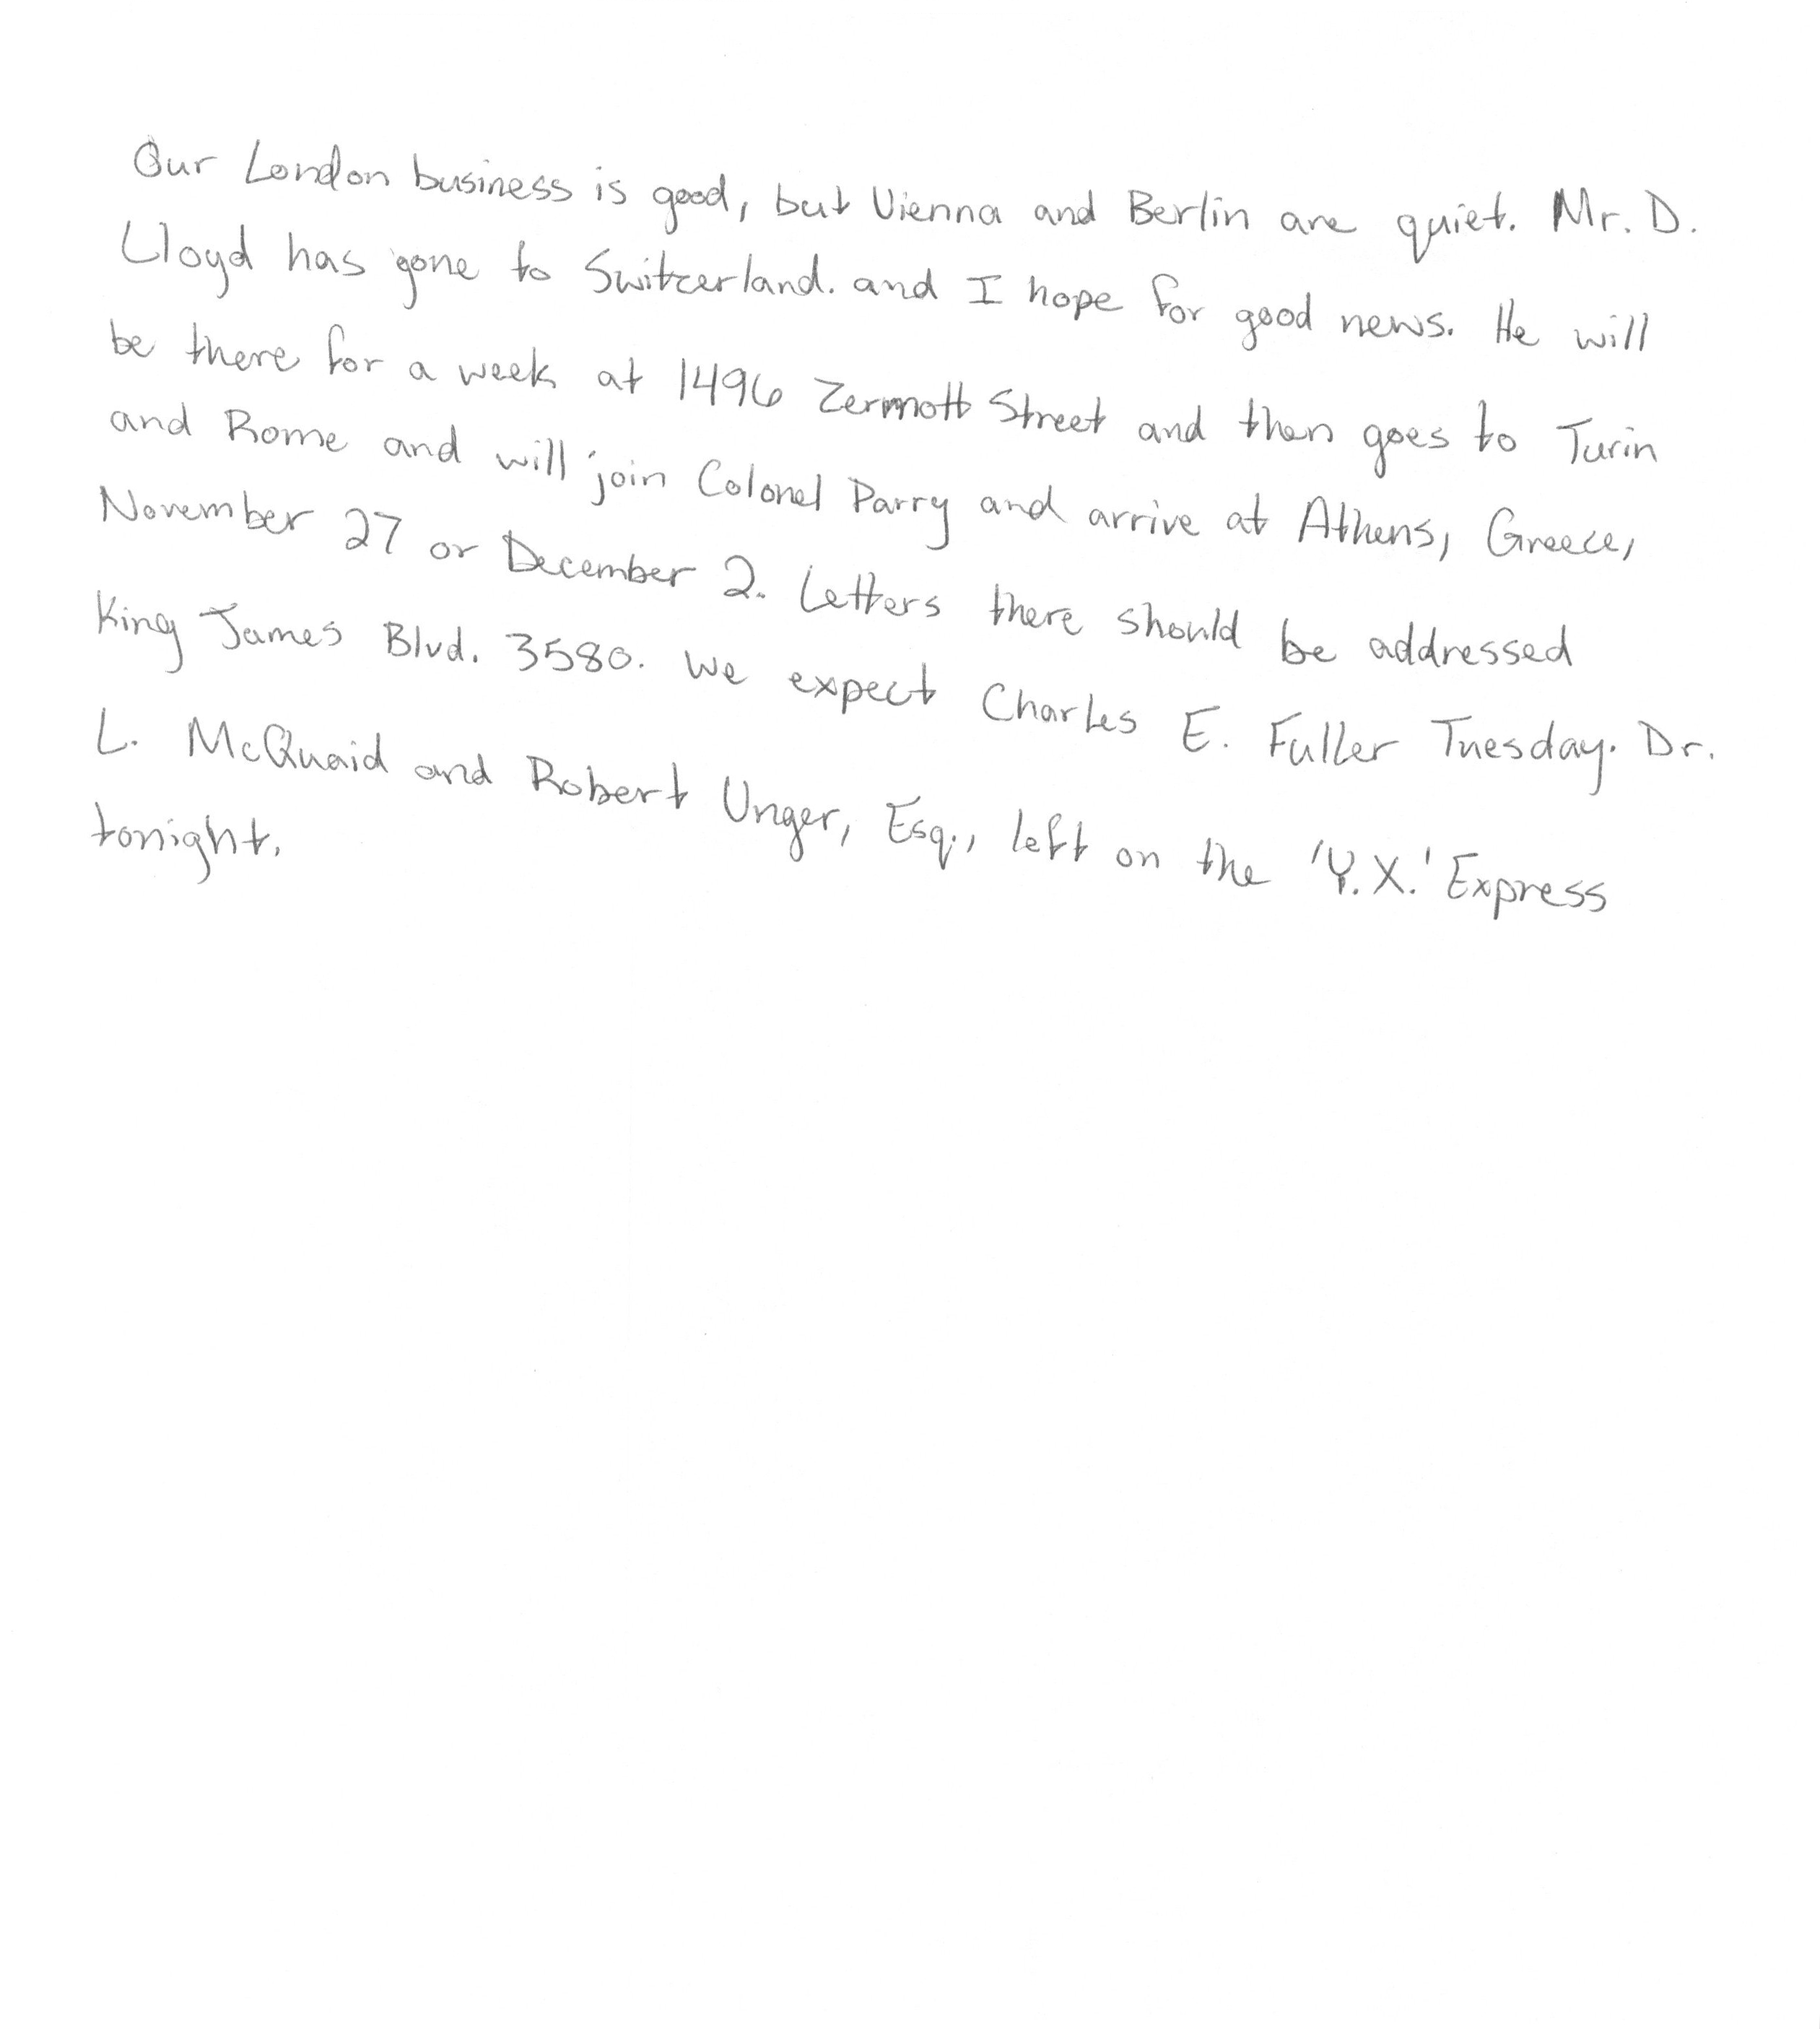 Our London business is good, but Vienna and Berlin are quiet. Mr. D.
Lloyd has gone to Switzerland. and I hope for good news. He will
be there for a week at 1496 Zermott Street and then goes to Turin
and Rome and will join Colonel Parry and arrive at Athens, Greece,
November 27 or December 2. Letters there should be addressed
King James Blvd. 3580. We expect Charles E. Fuller Tuesday. Dr.
L. McQuaid and Robert Unger, Esq., left on the 'Y.X.' Express
tonight.